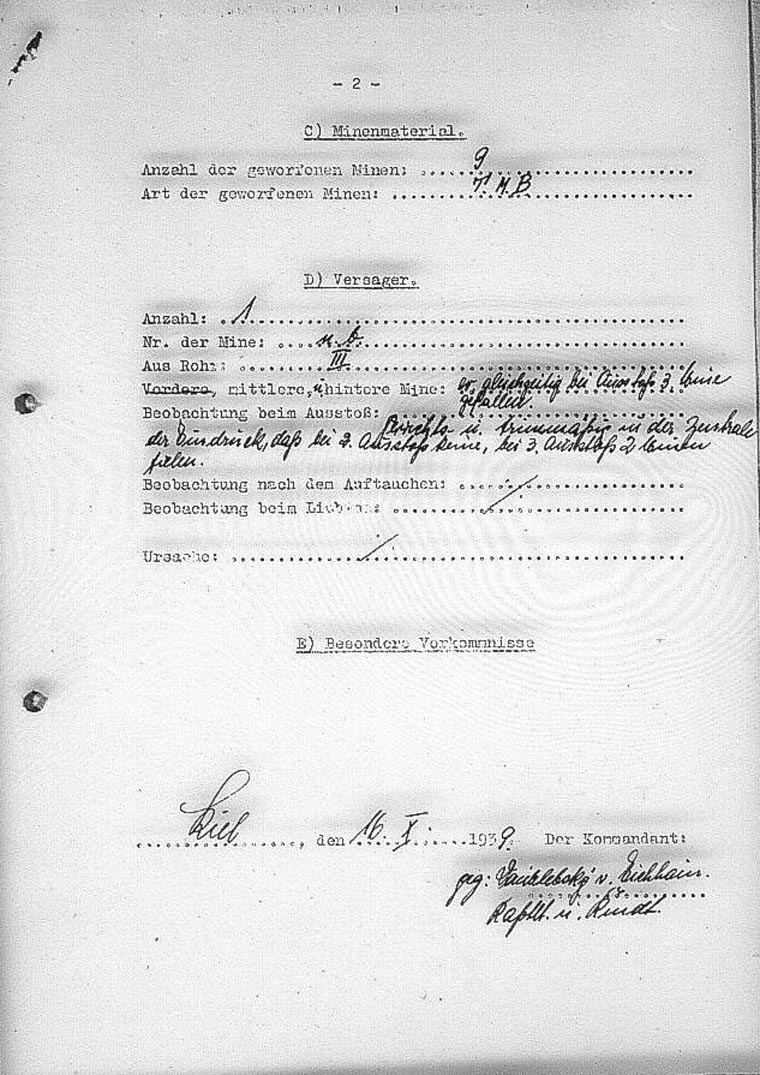 - 2 -
C) Minenmaterial.
Anzahl der geworfenen Minen: 9
Art der geworfenen Minen: T.M.B
D) Versager.
Anzahl: 1
Nr. der Mine: u.b.
Aus Rohr: III
Vordere, mittlere, u hintere Mine: gleichzeitig bei Ausstoß 3. Mine
gefallen.
Beobachtung beim Ausstoß: u. trimmmäßig in der Zentrale
der Eindruck, daß bei 2. Ausstoß keine, bei 3. Ausstoß 2 Minen
fielen.
Beobachtung nach dem Auftauchen:
Beobachtung beim
Ursache:
E) Besondere Vorkommnisse
Kiel, den 16. X. 1939. Der Kommandant:
gez: v. Eichhain.
Kaptlt. u. Kmdt.